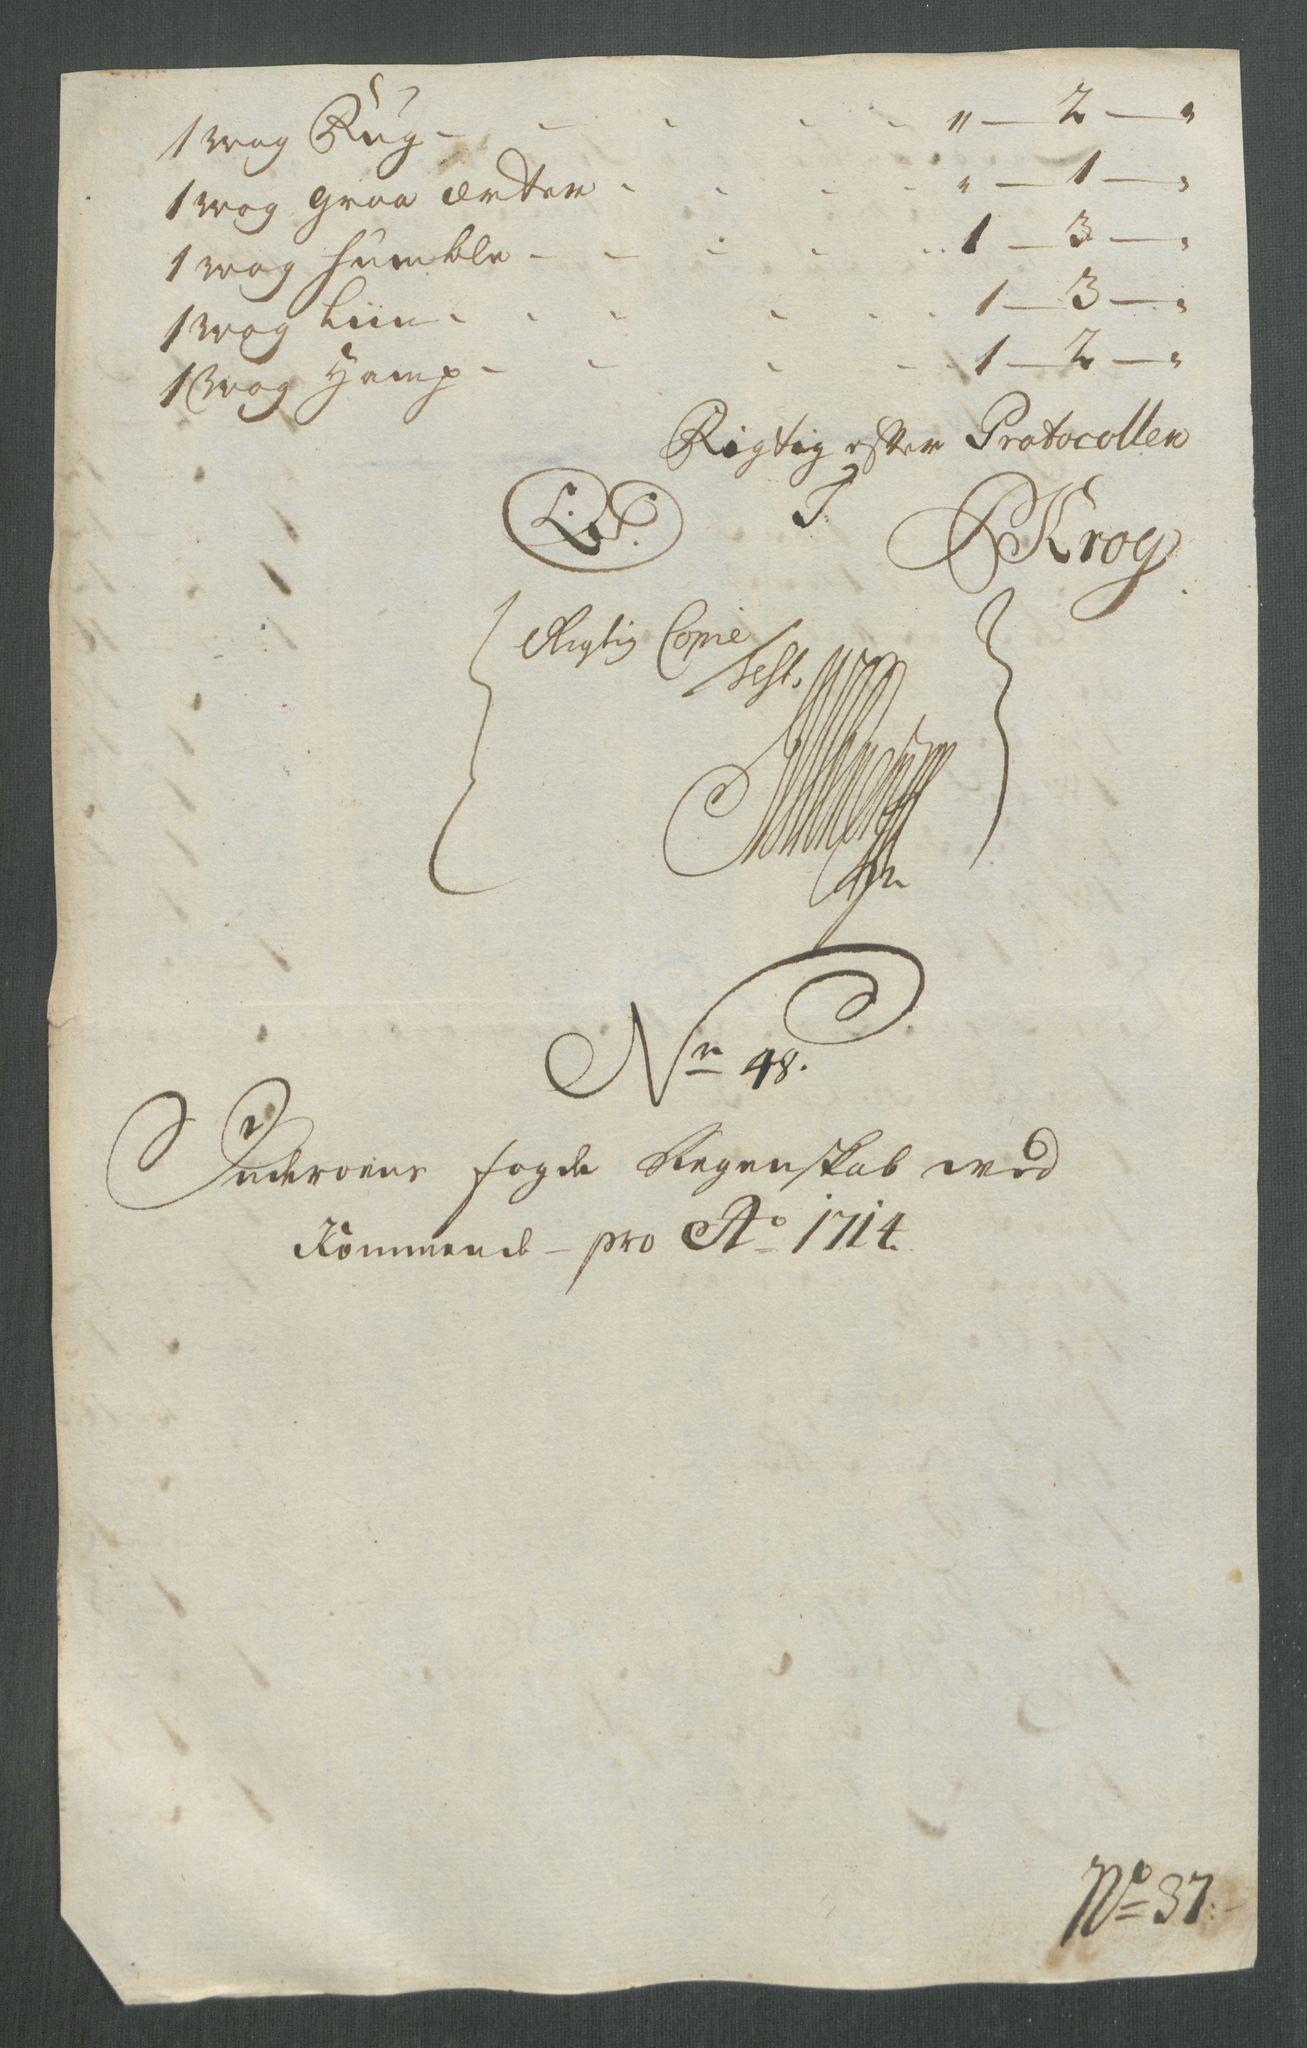 1 wog Rug - - - - - „ — 2 — „
1 wog graa ærter - - - - „ — 1 — „
1 wog humble - - - - - 1 — 3 — „
1 wog Liin - - - - - - 1 — 3 — „
1 wog Hamp - - - - - 1 — 2 — „
Rigtig efter Protocollen
L. S. T.
Krog
Rigtig Copie
test.
Nr 48.
Inderoens fogde Regenskab ved
Kommende - pro Ao 1714.
No 37.